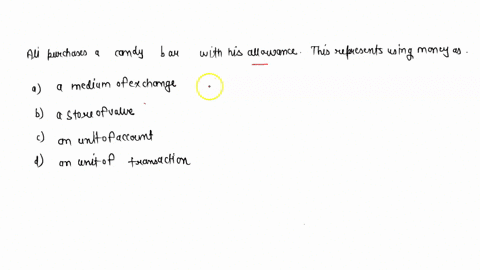 Ali purchases a candy bar with his allowance. This represents using money as.
a) a medium of exchange
b) a store of value
c) an unit of account
d) an unit of transaction